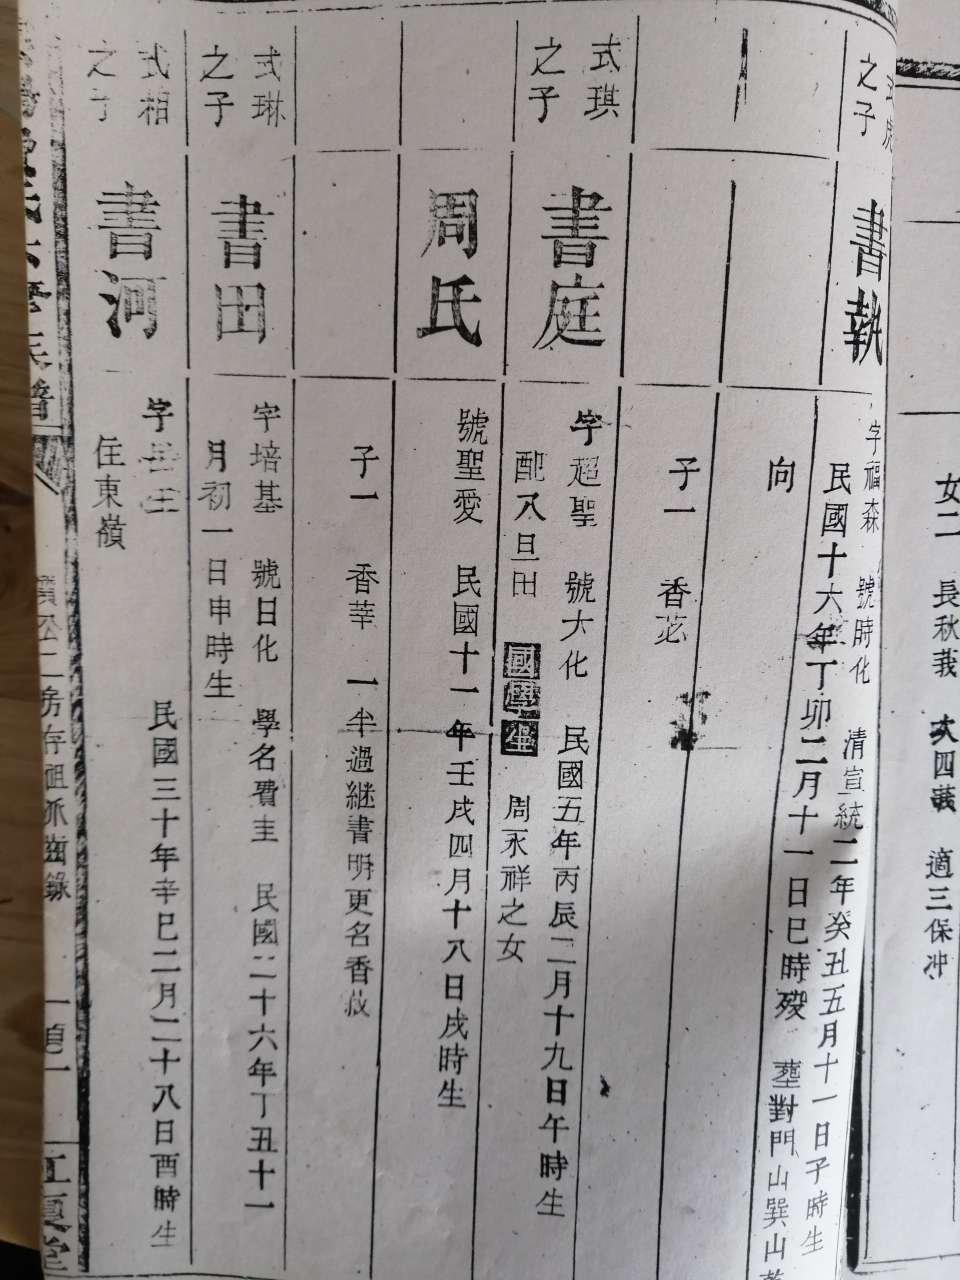 女二 長秋莪 次四莪 適三保冲
之子
書執
字福森 號時化 清宣統二年癸丑五月十一日子時生
民國十六年丁卯二月十一日巳時歿 塟對門山巽山乾
向
子一 香苾
式琪
之子
書庭
字超聖 號大化 民國五年丙辰二月十九日午時生
配八旦田 國學生 周永祥之女
周氏
號聖愛 民國十一年壬戌四月十八日戌時生
子一 香莘 一半過継書明更名香莪
式琳
之子
書田
字培基 號日化 學名費圭 民國二十六年丁丑十一
月初一日申時生
式相
之子
書河
字 民國三十年辛巳二月二十八日酉時生
住東嶺
二房存祖派齒錄
江夏堂